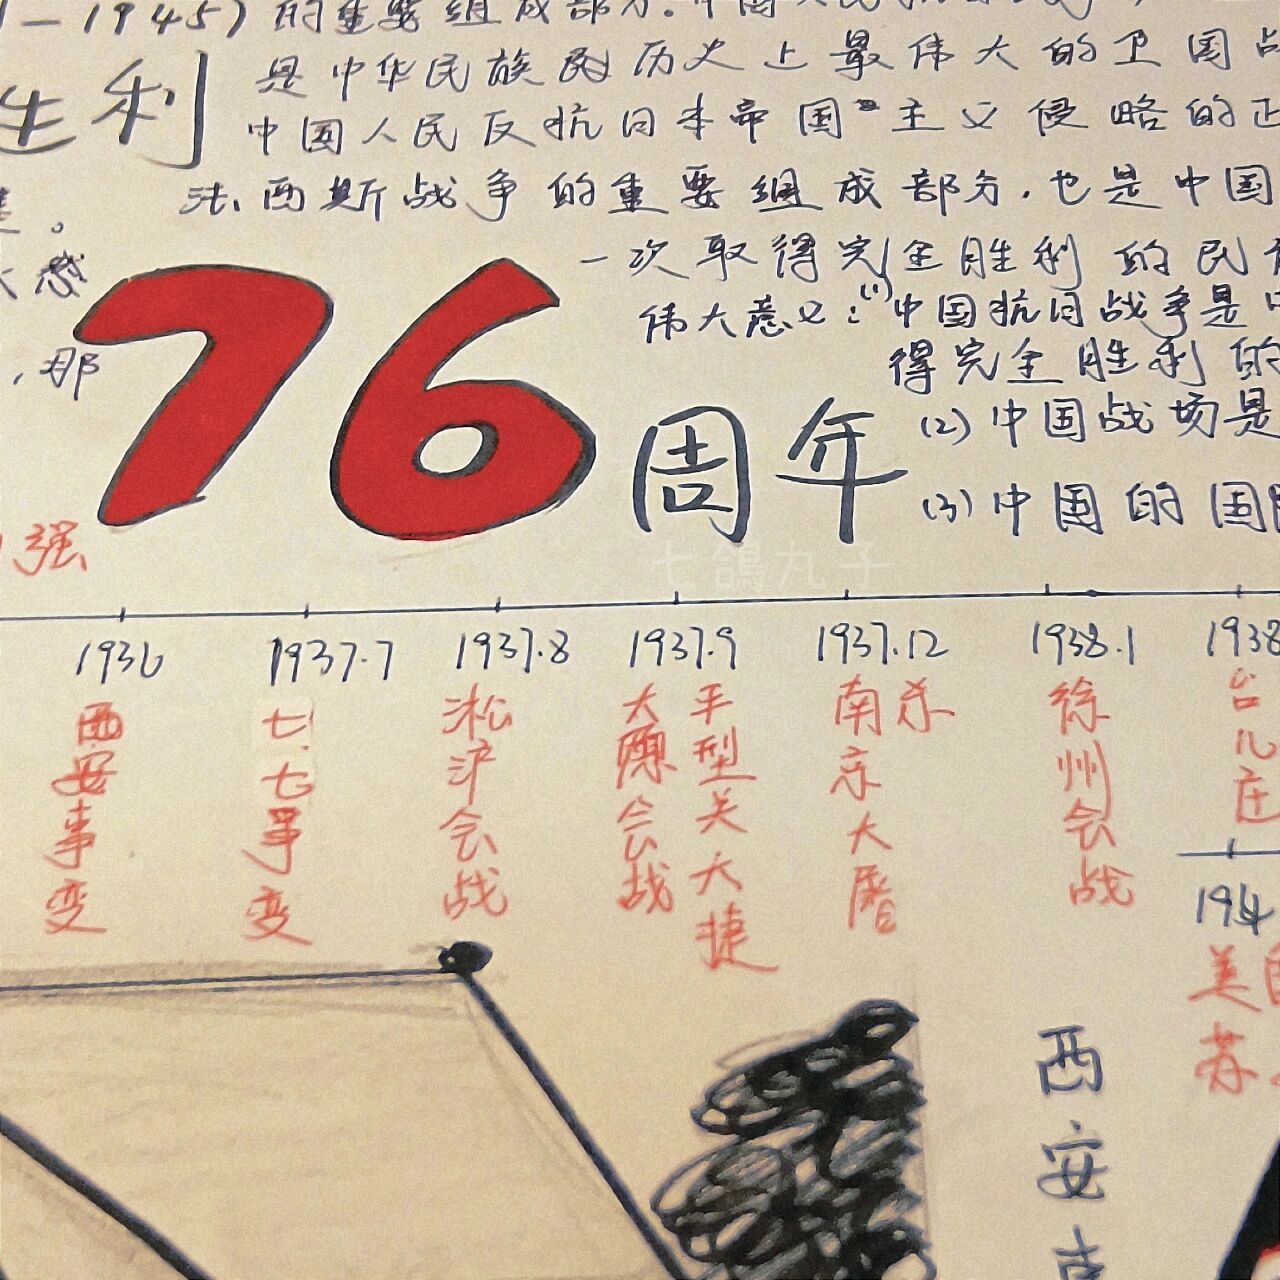 1945）的重要组成部分.中国人民
是中华民族 历史上最伟大的卫国
胜利
中国人民反抗日本帝国主义侵略的正
法西斯战争的重要组成部分.也是中国
一次取得完全胜利的民
伟大意义：(1)中国抗日战争是
得完全胜利的
76周年
(2)中国战场是
(3)中国的国
，那
强
七鸽九子
1936
西安事变
1937.7
七.七事变
1937.8
淞沪会战
1937.9
太原会战
平型关大捷
1937.12
南京大屠杀
1938.1
徐州会战
1938
台儿庄
194
美国
苏
西安